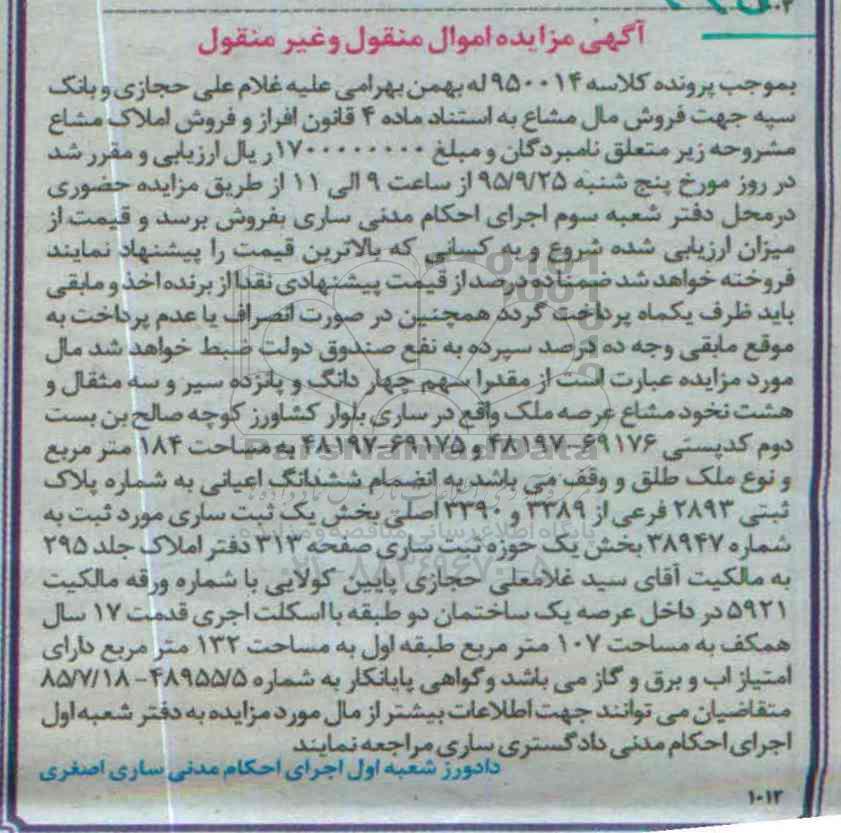 آگهی مزایده اموال منقول وغیر منقول
بموجب پرونده کلاسه ۹۵۰۰۱۴ له بهمن بهرامی علیه غلام علی حجازی و بانک
سپه جهت فروش مال مشاع به استناد ماده ۴ قانون افراز و فروش املاک مشاع
مشروحه زیر متعلق نامبردگان و مبلغ ۱۷۰۰۰۰۰۰۰۰ ریال ارزیابی و مقرر شد
در روز مورخ پنج شنبه ۹۵/۹/۲۵ از ساعت ۹ الی ۱۱ از طریق مزایده حضوری
درمحل دفتر شعبه سوم اجرای احکام مدنی ساری بفروش برسد و قیمت از
میزان ارزیابی شده شروع و به کسانی که بالاترین قیمت را پیشنهاد نمایند
فروخته خواهد شد ضمنا ده درصد از قیمت پیشنهادی نقدا از برنده اخذ و مابقی
باید ظرف یکماه پرداخت گردد همچنین در صورت انصراف یا عدم پرداخت به
موقع مابقی وجه ده درصد سپرده به نفع صندوق دولت ضبط خواهد شد مال
مورد مزایده عبارت است از مقدرا سهم چهار دانگ و پانزده سیر و سه مثقال و
هشت نخود مشاع عرصه ملک واقع در ساری بلوار کشاورز کوچه صالح بن بست
دوم کدپستی ۶۹۱۷۶-۴۸۱۹۷ و ۶۹۱۷۵-۴۸۱۹۷ به مساحت ۱۸۴ متر مربع
و نوع ملک طلق و وقف می باشد به انضمام ششدانگ اعیانی به شماره پلاک
ثبتی ۲۸۹۳ فرعی از ۳۳۸۹ و ۳۳۹۰ اصلی بخش یک ثبت ساری مورد ثبت به
شماره ۳۸۹۴۷ بخش یک حوزه ثبت ساری صفحه ۳۱۳ دفتر املاک جلد ۲۹۵
به مالکیت آقای سید غلامعلی حجازی پایین کولایی با شماره ورقه مالکیت
۵۹۲۱ در داخل عرصه یک ساختمان دو طبقه با اسکلت اجری قدمت ۱۷ سال
همکف به مساحت ۱۰۷ متر مربع طبقه اول به مساحت ۱۳۲ متر مربع دارای
امتیاز اب و برق و گاز می باشد وگواهی پایانکار به شماره ۴۸۹۵۵/۵ - ۸۵/۷/۱۸
متقاضیان می توانند جهت اطلاعات بیشتر از مال مورد مزایده به دفتر شعبه اول
اجرای احکام مدنی دادگستری ساری مراجعه نمایند
دادورز شعبه اول اجرای احکام مدنی ساری اصغری
۱۰۱۲